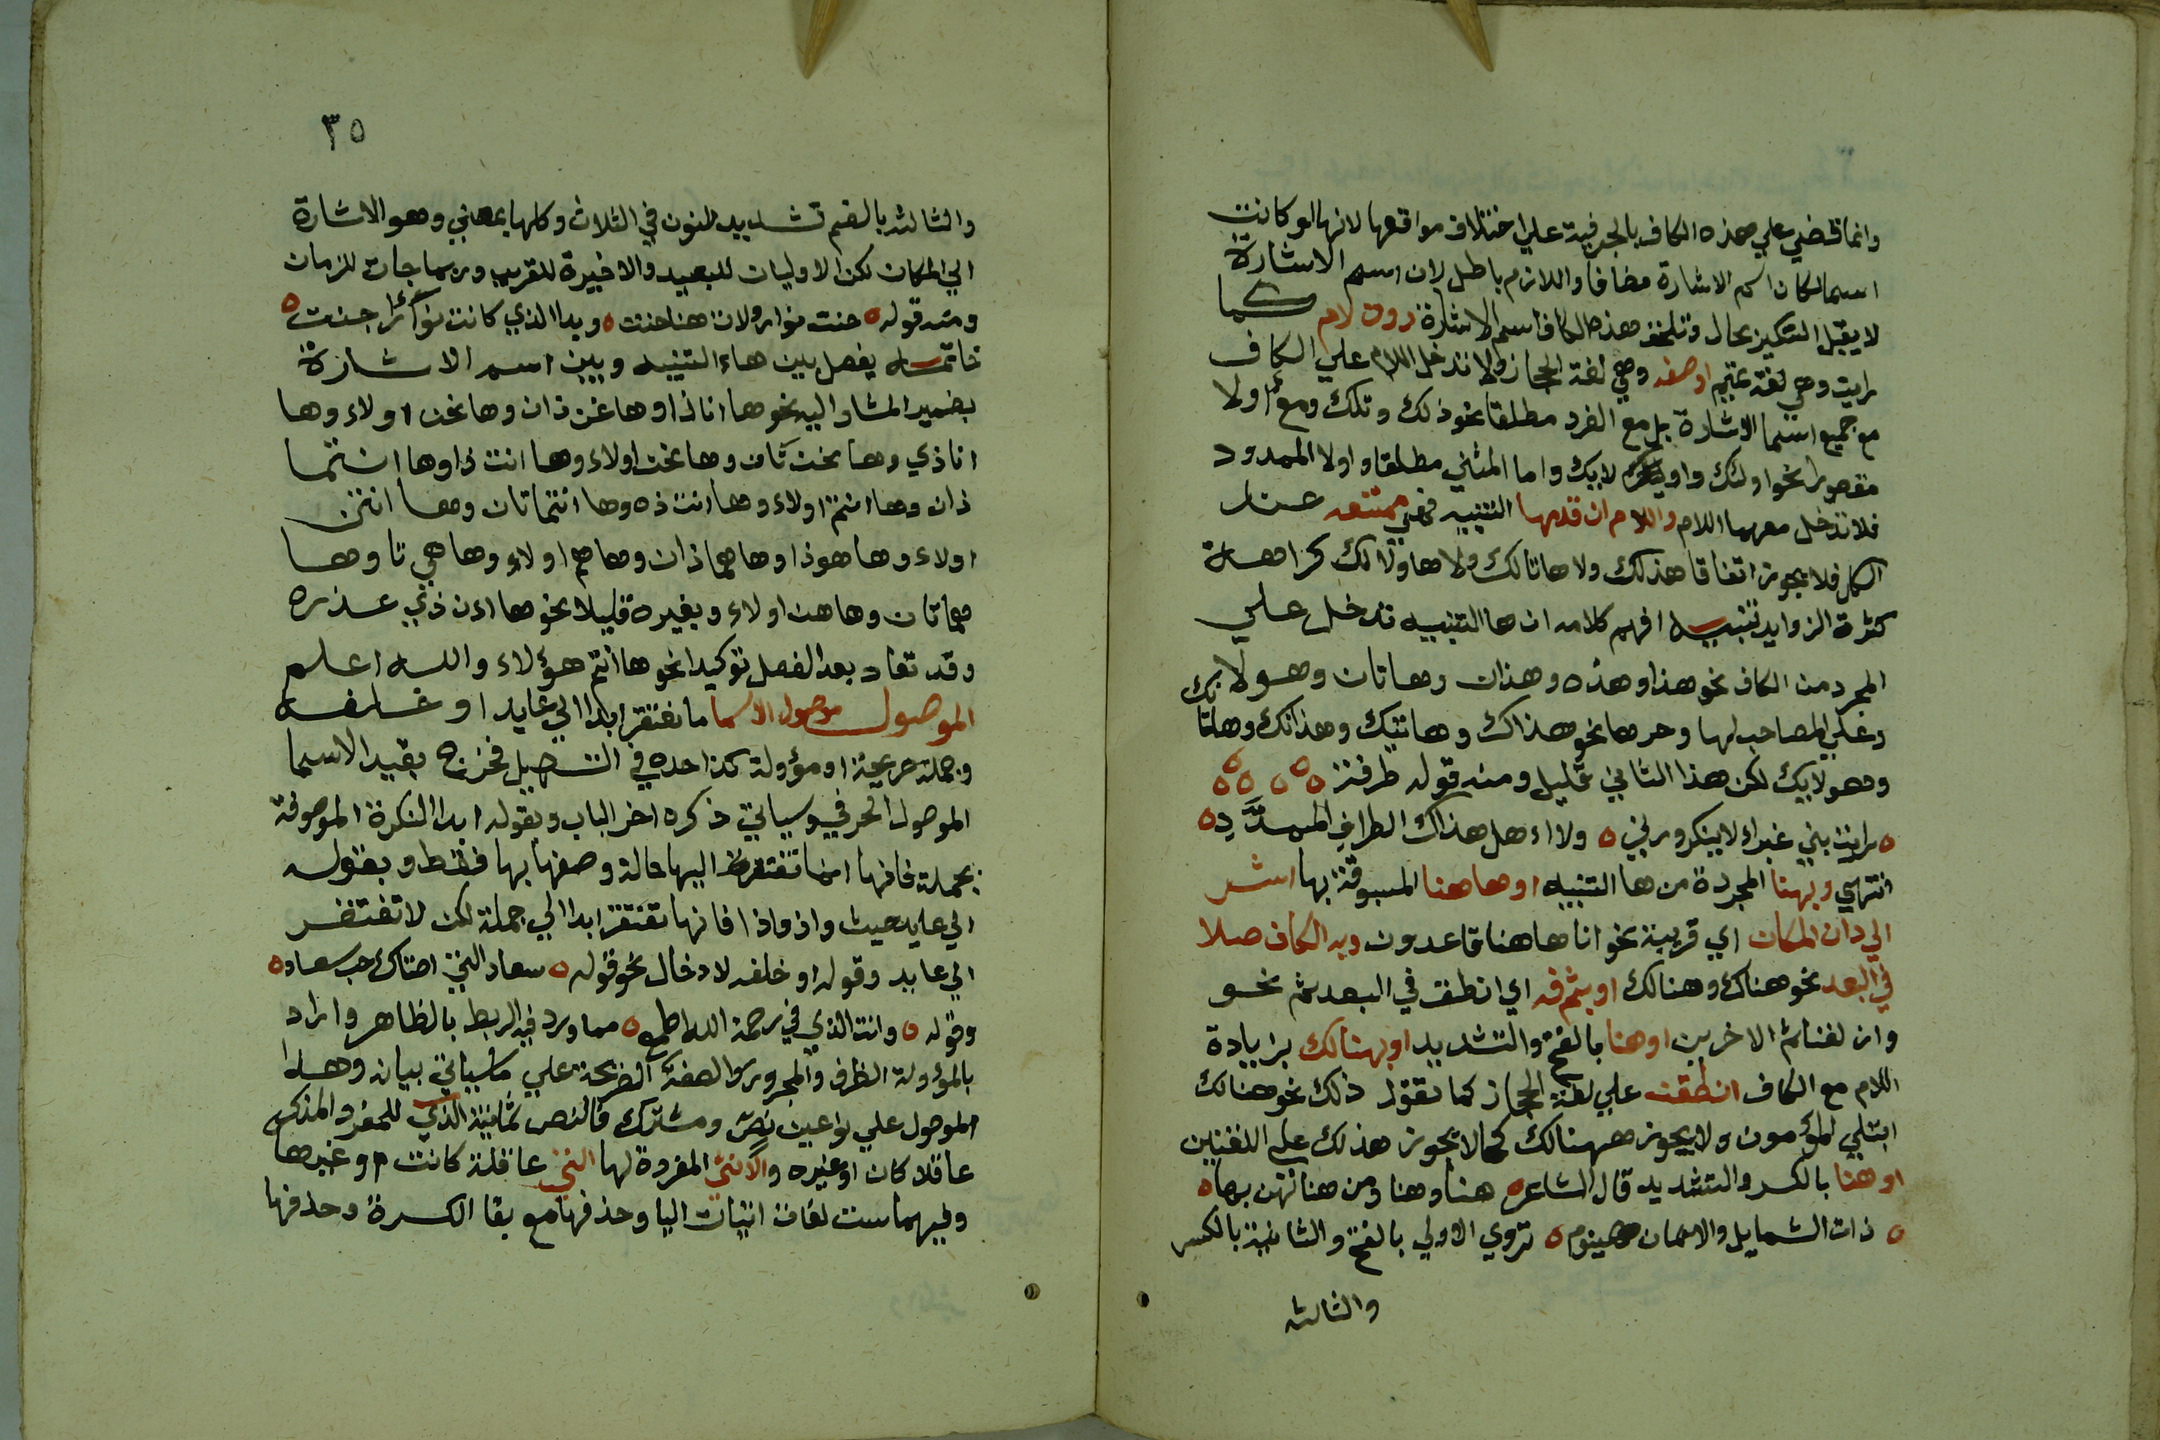 وانما قضي علي هذه الكاف بالحرفية علي اختلاف مواقعها لانها لو كانت
اسما لكان اسم الاشارة مضافا واللازم باطل لان اسم الاشارة
لا يقبل التنكير بحال وتلحق هذه الكاف اسم الاشارة دون لام كما
رايت وهي لغة تميم او معه وهي لغة الحجاز ولا تدخل اللام علي الكاف
مع جميع اسما الاشارة بل مع المفرد مطلقا نحو ذلك وتلك ومع اولا
مقصورا نحو اولئك واما المثني مطلقا واولا الممدود
فلا تدخل معهما اللام واللام ان قدمت ها التنبيه فهي ممتنعه عند
الكل فلا يجوز اتفاقا هذلك ولا هاتالك ولا هاولالك كراهة
كثرة الزوايد تنبيه افهم كلامه ان ها التنبيه تدخل علي
المجرد من الكاف نحو هذا وهذه وهذان وهاتان وهولا
وعلي المصاحب لها وحدها نحو هذاك وهاتيك وهذانك وهاتا
وهولايك لكن هذا الثاني قليل ومنه قوله طرفة
رايت بني غبراء لا ينكرونني ولا اهل هذاك الطراف الممدد
انتهي وبهنا المجردة من ها التنبيه او هاهنا المسبوقة بها اشر
الي دان المكان اي قريبه نحو انا هاهنا قاعدون وبه الكاف صلا
في البعد نحو هناك وهنالك او بثم فه اي انطق في البعد بثم نحو
وازلفنا ثم الاخرين او هنا بالفتح والتشديد او بهنالك بزيادة
اللام مع الكاف انطقن علي لغة الحجاز كما تقول ذلك نحو هنالك
ابتلي المؤمون ولا يجوز ههنالك كما لا يجوز هذلك علي اللغتين
او هنا بالكسر والتشديد قال الشاعر هنا وهنا ومن هنا لهن بها
ذات الشمايل والايمان هينوم تروي الاولي بالفتح والثانية بالكسر
والثالثه
٣٥
والثالثه بالضم تشديد النون في الثلاث وكلها بمعني وهو الاشارة
الي المكان لكن الاوليان للبعيد والاخيرة للقريب وربما جات للزمان
ومنه قوله حنت نوار ولات هنا حنت وبدا الذي كانت نوار اجنت
خاتمه يفصل بين هاء التنبيه وبين اسم الاشارة
بضمير المشار اليه نحو ها انا ذا وها نحن ذان وها نحن اولاء وها
انا ذي وها نحن تان وها نحن اولاء وها انت ذا وها انتما
ذان وها انتم اولاء وها انت ذه وها انتما تان وها انتن
اولاء وها هو ذا وها هما ذان وها هم اولاء وها هي تا وها
هما تان وها هن اولاء وبغيره قليلا نحو ها ان ذي عذره
وقد تعاد بعد الفصل توكيدا نحو ها انتم هؤلاء والله اعلم
الموصول موصول الاسما ما يفتقر ابدا الي عايد او خلفه
وجملة صريحة او مؤولة كذا حده في التسهيل فخرج بقيد الاسما
الموصول الحرفي وسياتي ذكره اخر الباب وبقوله ابدا النكرة الموصوفة
بجملة فانها انما تفتقر اليها حالة وصفها بها فقط وبقوله
الي عايد حيث واذ واذا فانها تفتقر ابدا الي جملة لكن لا تفتقر
الي عايد وقوله او خلفه لادخال نحو قوله سعاد التي اضناك حب سعاد
وقوله وانت الذي في رحمة الله اطمع مما ورد فيه الربط بالظاهر واراد
بالمؤولة الظرف والمجرور والصفة الصريحة علي ما سياتي بيانه وهذا
الموصول علي نوعين نص ومشترك فالنص ثمانية الذي للمفرد المذكر
عاقلا كان او غيره والانثي المفردة لها التي عاقلة كانت او غيرها
وفيهما ست لغات اثبات اليا وحذفها مع بقا الكسرة وحذفها